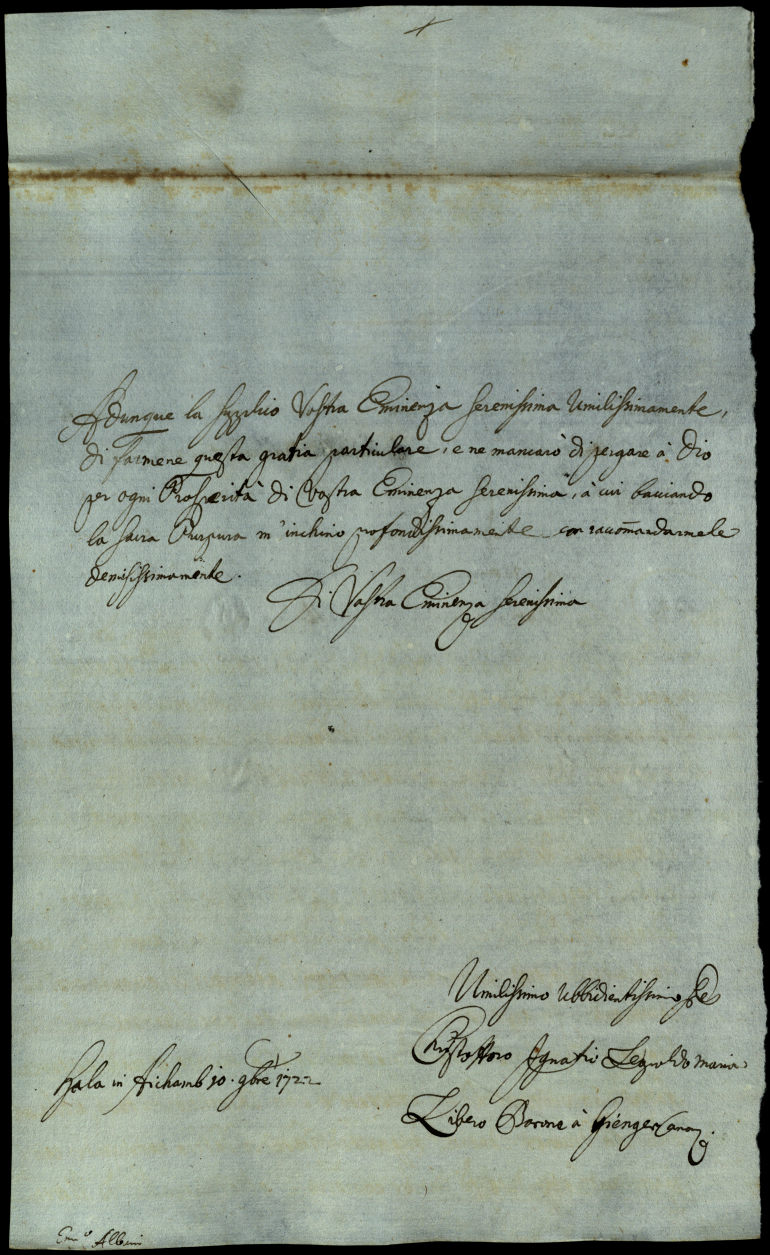 Adunque la supplico Vostra Eminenza Serenissima Umilissimamente,
di farmene questa gratia particulare, e ne mancarò di pergare à Dio
per ogni Prosperità di Vostra Eminenza Serenissima, à cui bacciando
la sacra Purpura m'inchino profondissimamente con raccom̃andarmele
demississimamente.
Di Vostra Eminenza Serenissima
Umilissimo Ubbidientissimo
Christofforo Ignatio Leopoldo Maria
Libero Barone à Gienger Can
Hala in 10. 9bre 1722
Em.o Albani